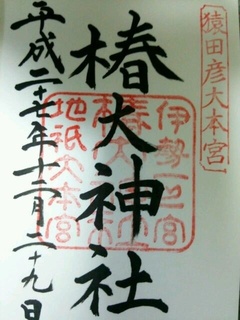 猿田彦大本宮
伊勢一之宮
椿大神社
地祇大本宮
椿大神社
平成二十七年十二月二十九日